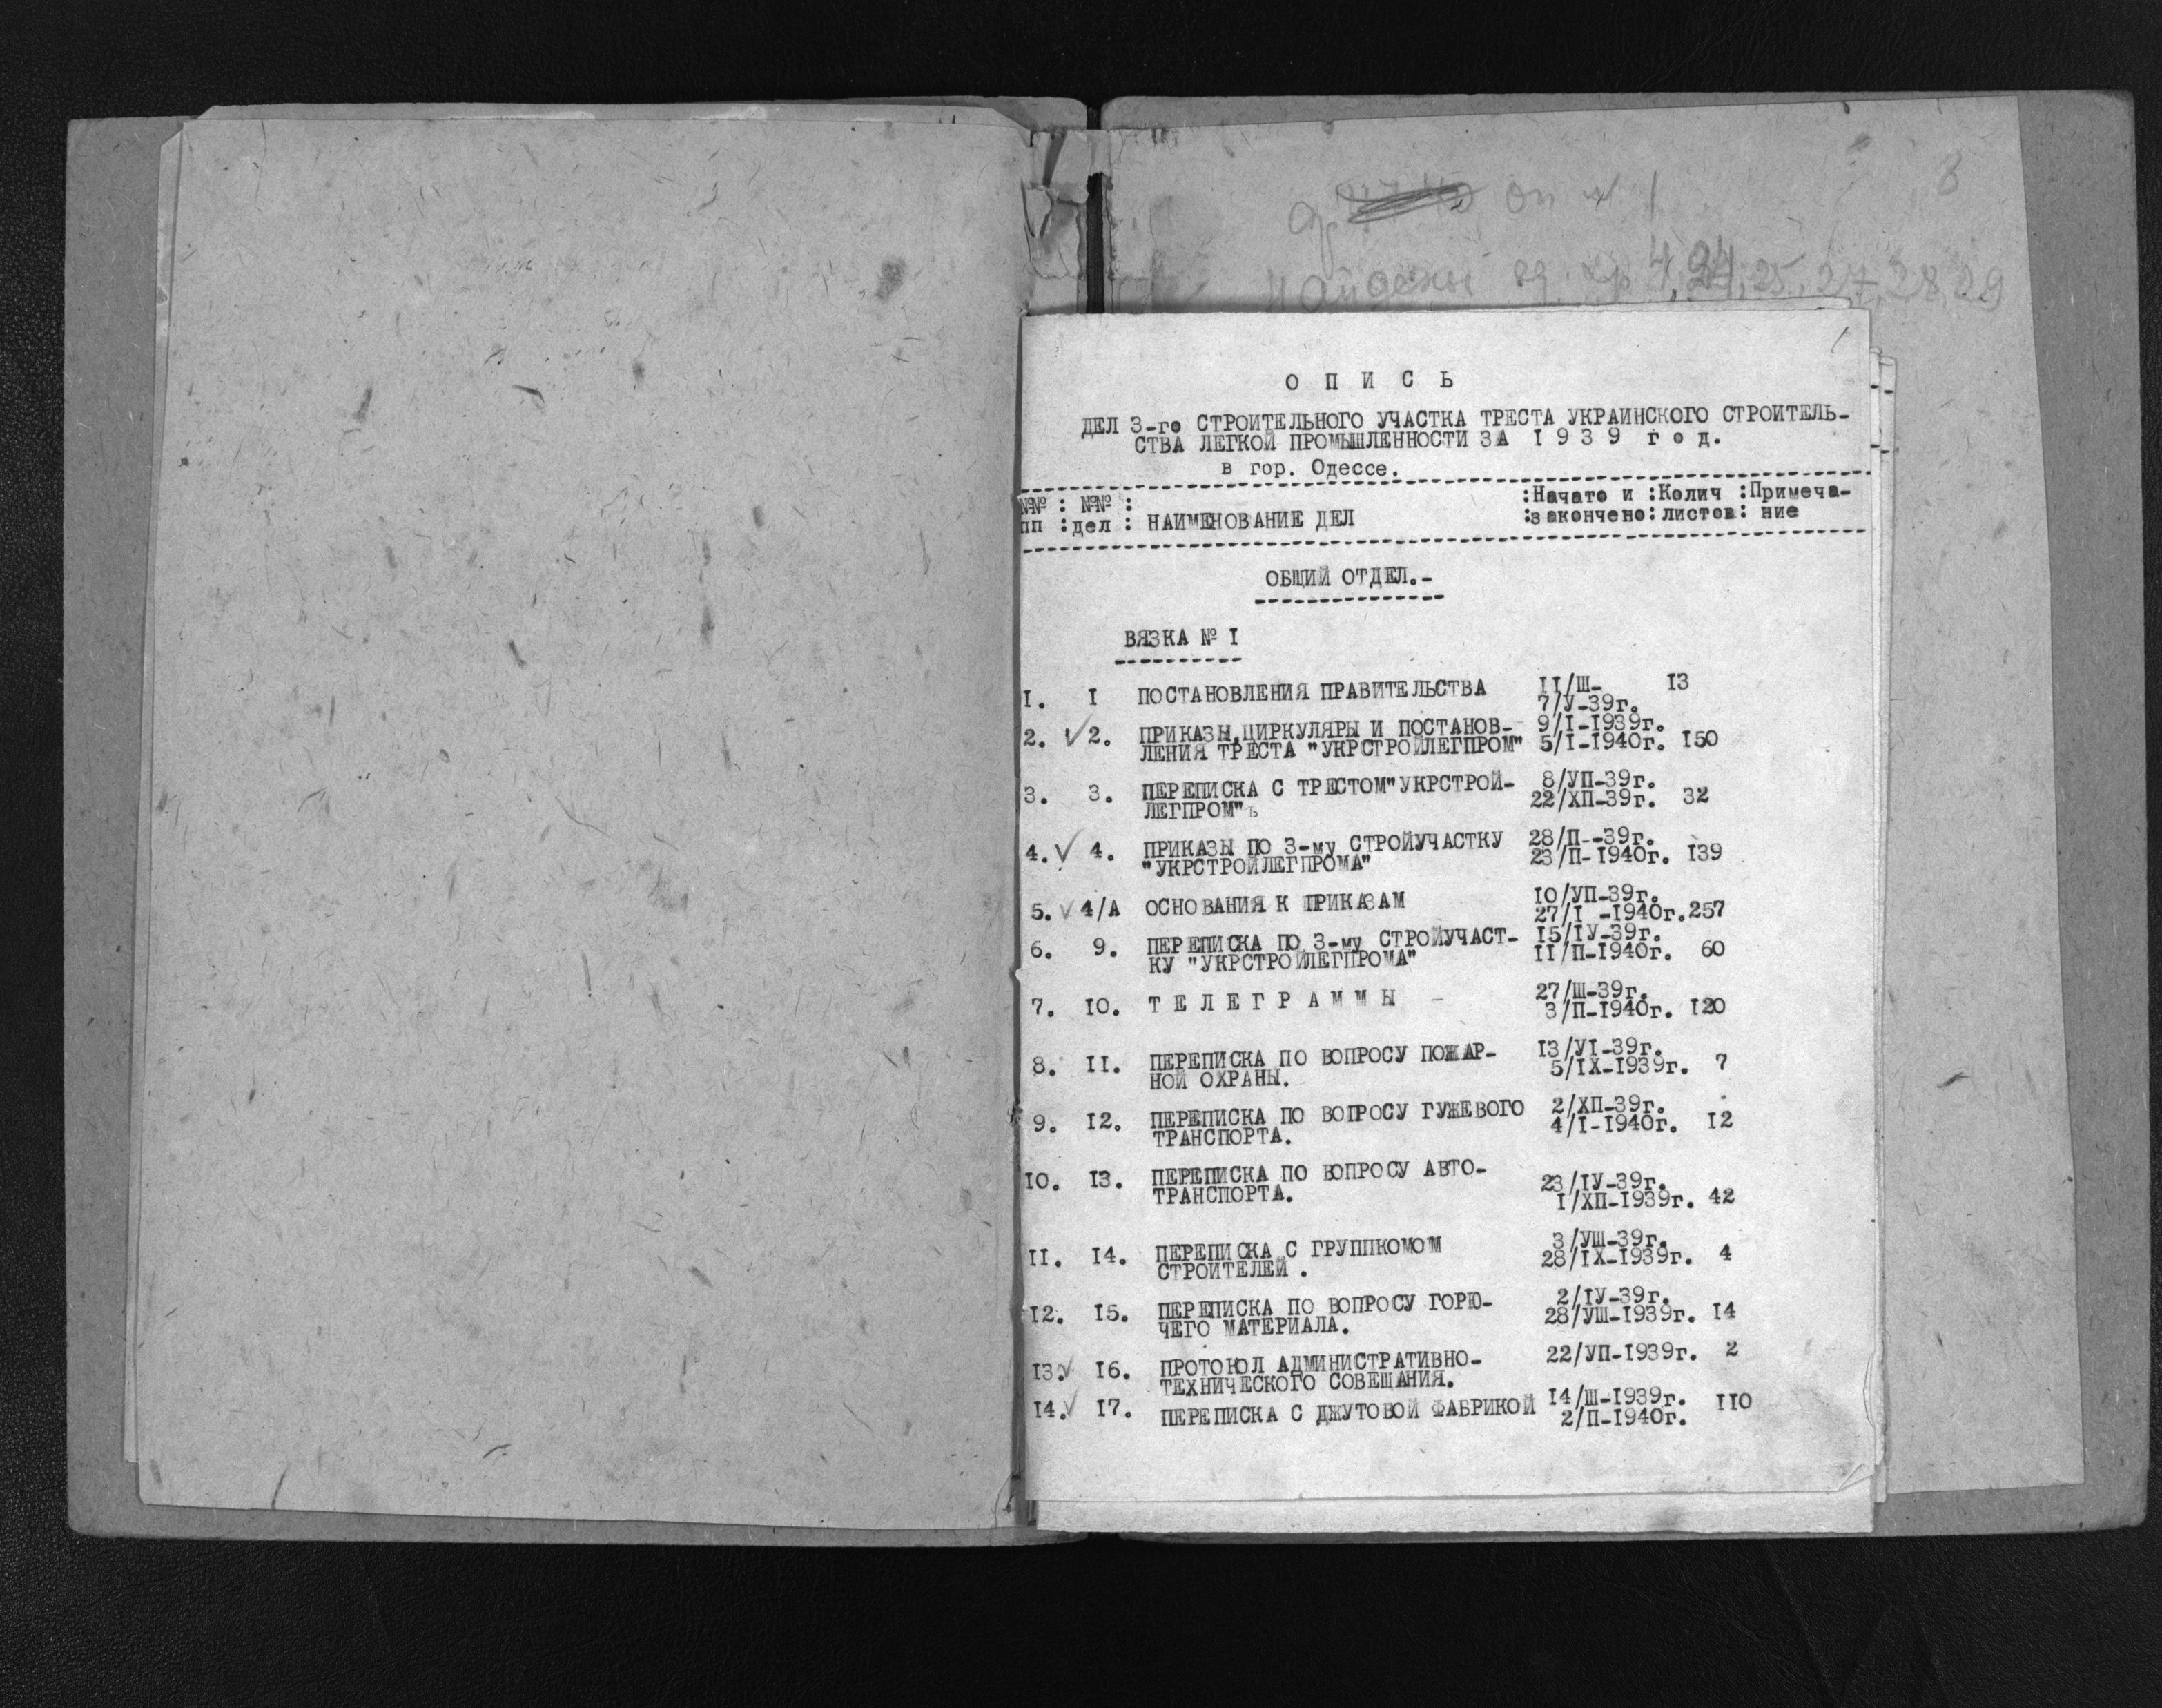 оп № 1
8
Найдены ед. хр 4, 24, 25, 27, 28, 29
1
О П И С Ь
ДЕЛ 3-го СТРОИТЕЛЬНОГО УЧАСТКА ТРЕСТА УКРАИНСКОГО СТРОИТЕЛЬ-
СТВА ЛЕГКОЙ ПРОМЫШЛЕННОСТИ ЗА I 9 3 9 г о д.
в гор. Одессе.
№№ : №№ : :Начато и :Колич :Примеча-
пп :дел : НАИМЕНОВАНИЕ ДЕЛ :закончено: листов: ние
ОБЩИЙ ОТДЕЛ.-
ВЯЗКА № I
I. I ПОСТАНОВЛЕНИЯ ПРАВИТЕЛЬСТВА II/Ш- I3
7/У-39г.
2. √ 2. ПРИКАЗЫ,ЦИРКУЛЯРЫ И ПОСТАНОВ- 9/I-I939г.
ЛЕНИЯ ТРЕСТА "УКРСТРОЙЛЕГПРОМ" 5/I-I940г. I50
3. 3. ПЕРЕПИСКА С ТРЕСТОМ"УКРСТРОЙ- 8/УП-39г.
ЛЕГПРОМ"ъ 22/ХП-39г. 32
4. √ 4. ПРИКАЗЫ ПО 3-му СТРОЙУЧАСТКУ 28/П--39г.
"УКРСТРОЙЛЕГПРОМА" 23/П-I940г. I39
5. √ 4/А ОСНОВАНИЯ К ПРИКАЗАМ I0/УП-39г.
27/I -I940г.257
6. 9. ПЕРЕПИСКА ПО 3-му СТРОЙУЧАСТ- I5/IУ-39г.
КУ "УКРСТРОЙЛЕГПРОМА" II/П-I940г. 60
7. I0. Т Е Л Е Г Р А М М Ы - 27/Ш-39г.
3/П-I940г. I20
8. II. ПЕРЕПИСКА ПО ВОПРОСУ ПОЖАР- I3/УI-39г.
НОЙ ОХРАНЫ. 5/IХ-I939г. 7
9. I2. ПЕРЕПИСКА ПО ВОПРОСУ ГУЖЕВОГО 2/ХП-39г.
ТРАНСПОРТА. 4/I-I940г. I2
I0. I3. ПЕРЕПИСКА ПО ВОПРОСУ АВТО- 23/IУ-39г.
ТРАНСПОРТА. I/ХП-I939г. 42
II. I4. ПЕРЕПИСКА С ГРУППКОМОМ 3/УШ-39г.
СТРОИТЕЛЕЙ . 28/IХ-I939г. 4
I2. I5. ПЕРЕПИСКА ПО ВОПРОСУ ГОРЮ- 2/IУ-39г.
ЧЕГО МАТЕРИАЛА. 28/УШ-I939г. I4
I3. √ I6. ПРОТОКОЛ АДМИНИСТРАТИВНО- 22/УП-I939г. 2
ТЕХНИЧЕСКОГО СОВЕЩАНИЯ.
I4. √ I7. ПЕРЕПИСКА С ДЖУТОВОЙ ФАБРИКОЙ I4/Ш-I939г. II0
2/П-I940г.